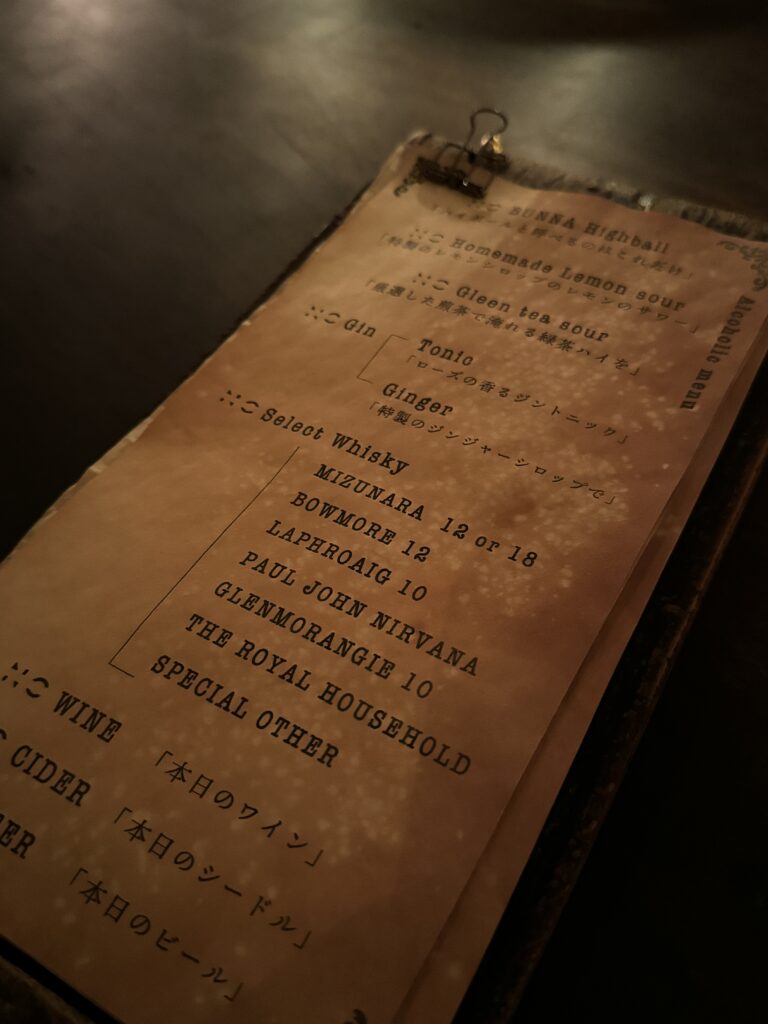 BUNNA Highball
「ハイボールと呼べるの はこれだけ」
Homemade Lemon sour
「特製のレモンシロップのレモンのサワー」
Gleen tea sour
「厳選した煎茶で淹れる緑茶ハイを」
Gin
Tonic
「ローズの香るジントニック」
Ginger
「特製のジンジャーシロップで」
Select Whisky
MIZUNARA 12 or 18
BOWMORE 12
LAPHROAIG 10
PAUL JOHN NIRVANA
GLENMORANGIE 10
THE ROYAL HOUSEHOLD
SPECIAL OTHER
WINE
「本日のワイン」
CIDER
「本日のシードル」
ER
「本日のビール」
Alcoholic menu